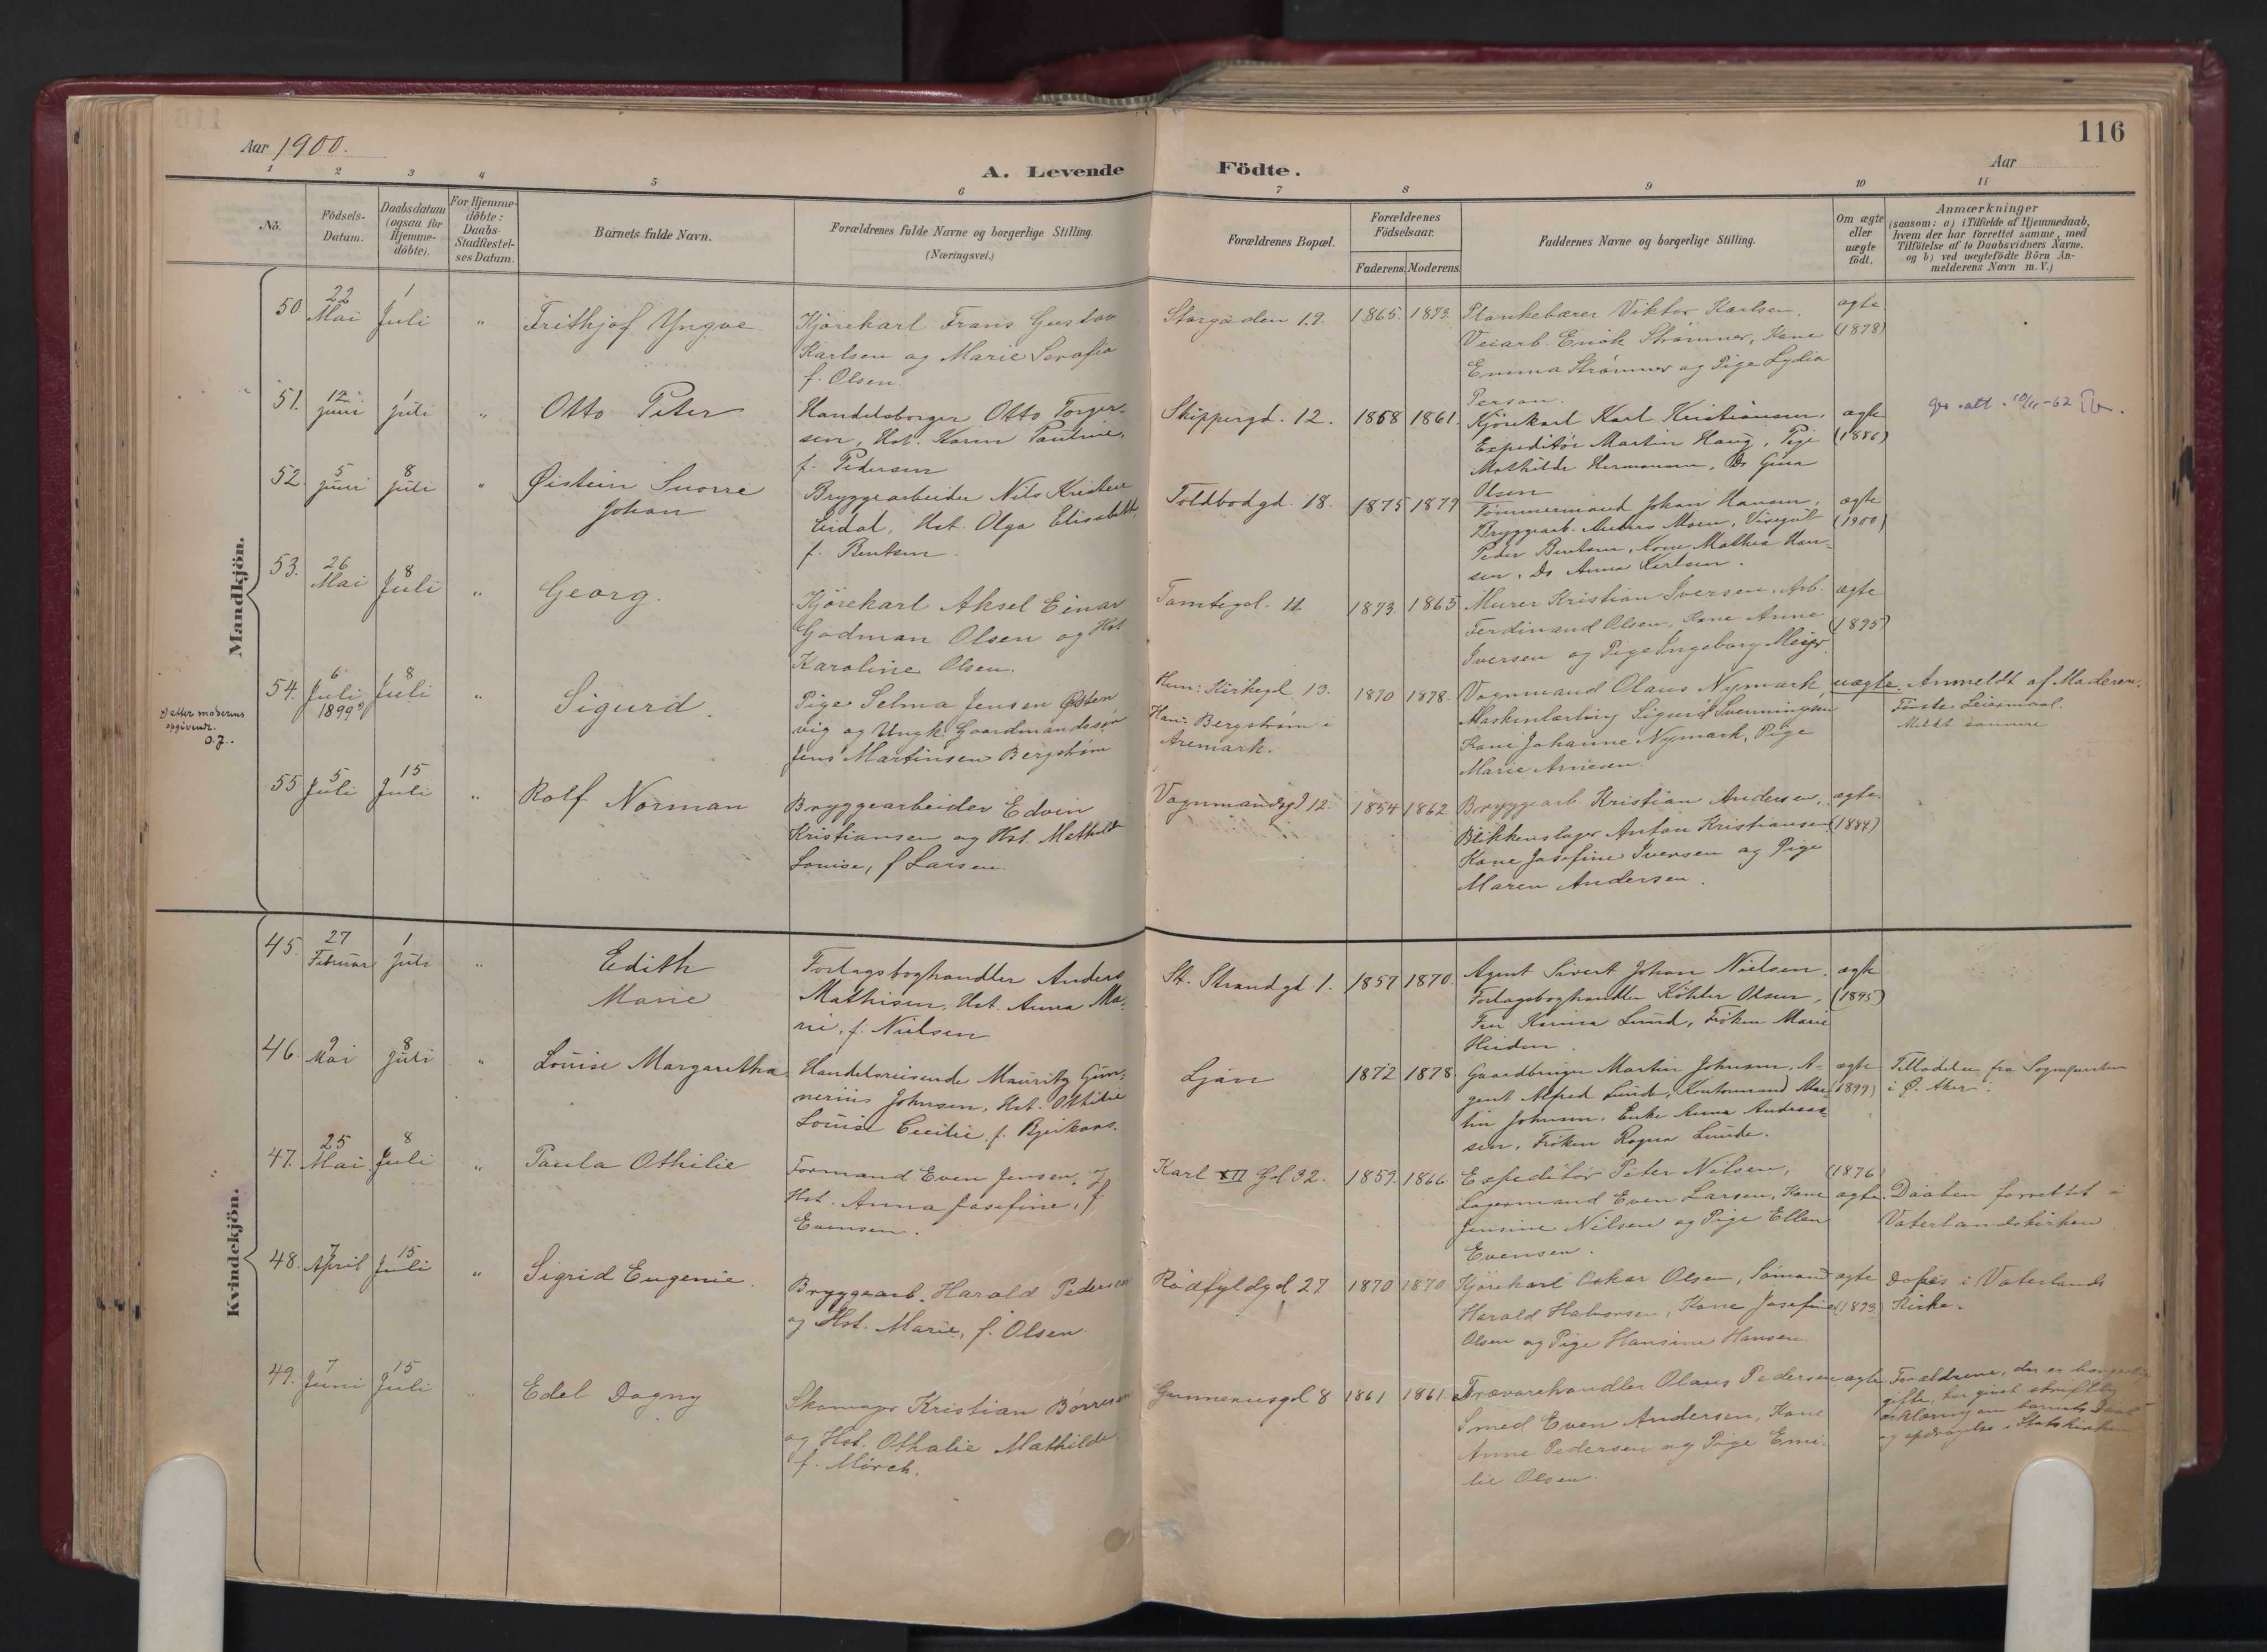 116
Aar 1900.
Aar
A. Levende Födte.
1 2 3 4 5 6 7 8 9 10 11
No.
Födsels-Datum.
Daabsdatum (ogsaa for Hjemme-döbte).
For Hjemme-döbte: Daabs-Stadfæstel-ses Datum.
Barnets fulde Navn.
Forældrenes fulde Navne og borgerlige Stilling. (Næringsvei.)
Forældrenes Bopæl.
Forældrenes Födselsaar.
Faderens. Moderens.
Faddernes Navne og borgerlige Stilling.
Om ægte eller uægte födt.
Anmærkninger
(saasom: a) i Tilfælde af Hjemmedaab, hvem der har forrettet samme, med Tilföielse af to Daabsvidners Navne. og b) ved uægtefödte Börn An-melderens Navn m. V.)
Mandkjön.
50. 22 Mai 1 Juli „ Frithjof Yngve
Kjørekarl Frans Gustav
Karlsen og Marie Serafia
f. Olsen.
Storgaden 19. 1865. 1873.
Plankebærer Viktor Karlsen,
Veiarb. Enok Strømner, Kone
Emma Strømner og Pige Lydia
Person.
ægte (1878)
51. 12 Juni 1 Juli „ Otto Peter
Handelsborger Otto Torger-
sen, Hst. Karen Pauline,
f. Pedersen
Skippergd. 12. 1858 1861.
Kjørekarl Karl Kristiansen,
Expeditør Martin Haug, Pige
Mathilde Hermansen, Do Gina
Olsen
ægte (1886)
52. 5 Juni 8 Juli „ Øistein Snorre
Johan
Bryggearbeider Nils Kristian
Eidal, Hst. Olga Elisabeth,
f. Bentsen.
Toldbodgd. 18. 1875 1879
Tømmermand Johan Hansen,
Bryggearb. Anders Moen, Visergut
Peder Bentsen, Kone Mathea Han-
sen, Do Anna Karlsen.
ægte (1900)
53. 26 Mai 8 Juli „ Georg.
Kjørekarl Aksel Einar
Godman Olsen og Hst
Karoline Olsen.
Tomtegd. 11 1873. 1865
Murer Kristian Iversen, Arb.
Ferdinand Olsen, Kone Anne
Iversen og Pige Ingeborg Meijer.
ægte (1895)
54. 6 Juli 1899 x) 8 Juli „ Sigurd.
x) efter moderens
opgivende.
O.J.
Pige Selma Jensen Østen
vig og Ungk. Gaardmandssøn
Jens Martinsen Bergstrøm
Hun: Kirkegd. 13.
Han: Bergstrøm i
Aremark.
1870 1878.
Vognmand Olaus Nymark,
Maskinlærling Sigurd Svenningsen
Kone Johanne Nymark, Pige
Marie Arnesen.
uægte. Anmeldt af Moderen.
Første Leiermaal.
Meldt samme
55 5 Juli 15 Juli „ Rolf Norman
Bryggearbeider Edvin
Kristiansen og Hst. Mathilde
Louise, f Larsen.
Vognmandsgd 12. 1854 1862
Bryggearb. Kristian Andersen,
Blikkenslager Anton Kristiansen
Kone Josefine Iversen og Pige
Maren Andersen.
ægte. (1884)
Kvindekjön.
45. 27 Februar 1 Juli „ Edith
Marie
Forlagsboghandler Anders
Mathisen, Hst. Anna Ma-
rie, f. Nielsen
St. Strandgd 1. 1857 1870.
Agent Sivert Johan Nielsen,
Forlagsboghandler Köhler Olsen,
Fru Karina Lund, Frøken Marie
ægte (1895)
46. 9 Mai 8 Juli „ Louise Margaretha.
Handelsreisende Mauritz Gun-
nerius Johnsen, Hst. Othilie
Louise Cecilie, f.
Ljan 1872 1878
Gaardbruger Martin Johnsen, A-
gent Alfred Lunde, Kontormand Mar-
tin Johnsen, Enke Anna Anders-
sen, Frøken Ragna Lunde.
ægte (1899)
Tilladelse fra Sognepresten
i Ø. Aker.
47. 25 Mai 8 Juli „ Paula Othilie
Formand Even Jensen, og
Hst. Anna Josefine, f.
Evensen.
Karl XII Gd 32. 1859. 1866
Expeditør Peter Nilsen,
Lagermand Even Larsen, Kone
Jensine Nilsen og Pige Ellen
Evensen.
(1876) ægte.
Daaben forrettet i
Vaterlandskirken
48. 7 April 15 Juli „ Sigrid Eugenie.
Bryggearb. Harald Pedersen
og Hst. Marie, f. Olsen
Rødfyldgd 27 1870 1870
Kjørekarl Oskar Olsen, Sømand
Harald Halvorsen, Kone Josefine
Olsen og Pige Hansine Hansen
ægte (1893)
Døbes i Vaterlands
Kirke.
49. 7 Juni 15 Juli „ Edel Dagny
Skomager Kristian Børresen
og Hst. Othalie Mathilde
f. Mörch.
Gunnerusgd 8 1861 1861.
Trævarehandler Olaus Pedersen
Smed Even Andersen, Kone
Anne Pedersen og Pige Emi-
lie Olsen.
ægte.
Forældrene, der er borgerlig
gifte, har givet skriftlig
erklæring om barnets Daab
og opdragelse i Statskirken